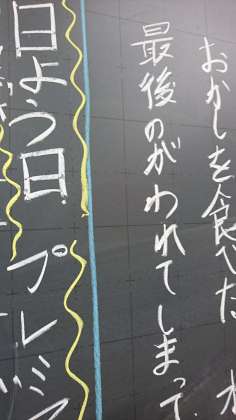 おかしを食べた
最後のがわれてしまって
日よう日 プレミ